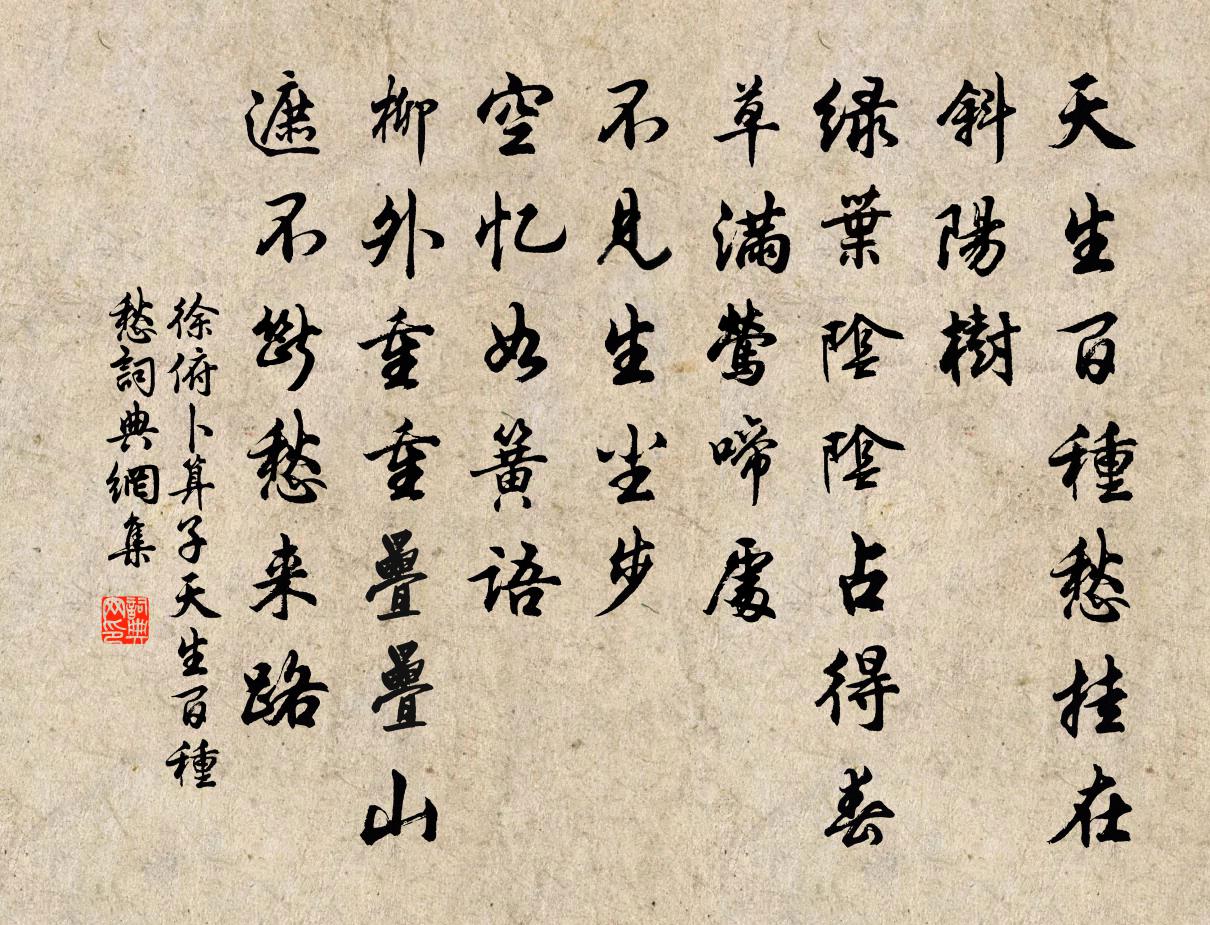 天生百種愁挂在
斜陽樹
绿葉陰陰占得春
草滿鶯啼處
不見生尘步
空忆如簧語
柳外重重疊疊山
遮不斷愁来路
徐俯卜算子天生百種
愁詞典網集
詞典网印